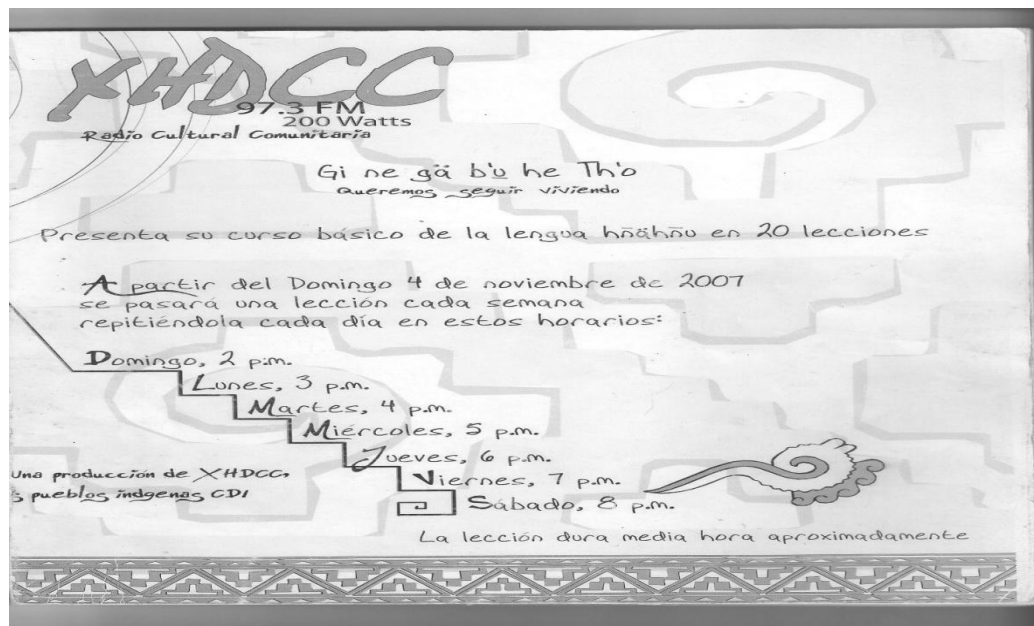 XHDCC
97.3 FM
200 Watts
Radio Cultural Comunitaria
Gi ne gä b'u̲ he Th'o
Queremos seguir viviendo
Presenta su curso básico de la lengua hñähñu en 20 lecciones
A partir del Domingo 4 de noviembre de 2007
se pasará una lección cada semana
repitiéndola cada día en estos horarios:
Domingo, 2 p.m.
Lunes, 3 p.m.
Martes, 4 p.m.
Miércoles, 5 p.m.
Jueves, 6 p.m.
Viernes, 7 p.m.
Sábado, 8 p.m.
Una producción de XHDCC,
s pueblos indgenas CDI
La lección dura media hora aproximadamente